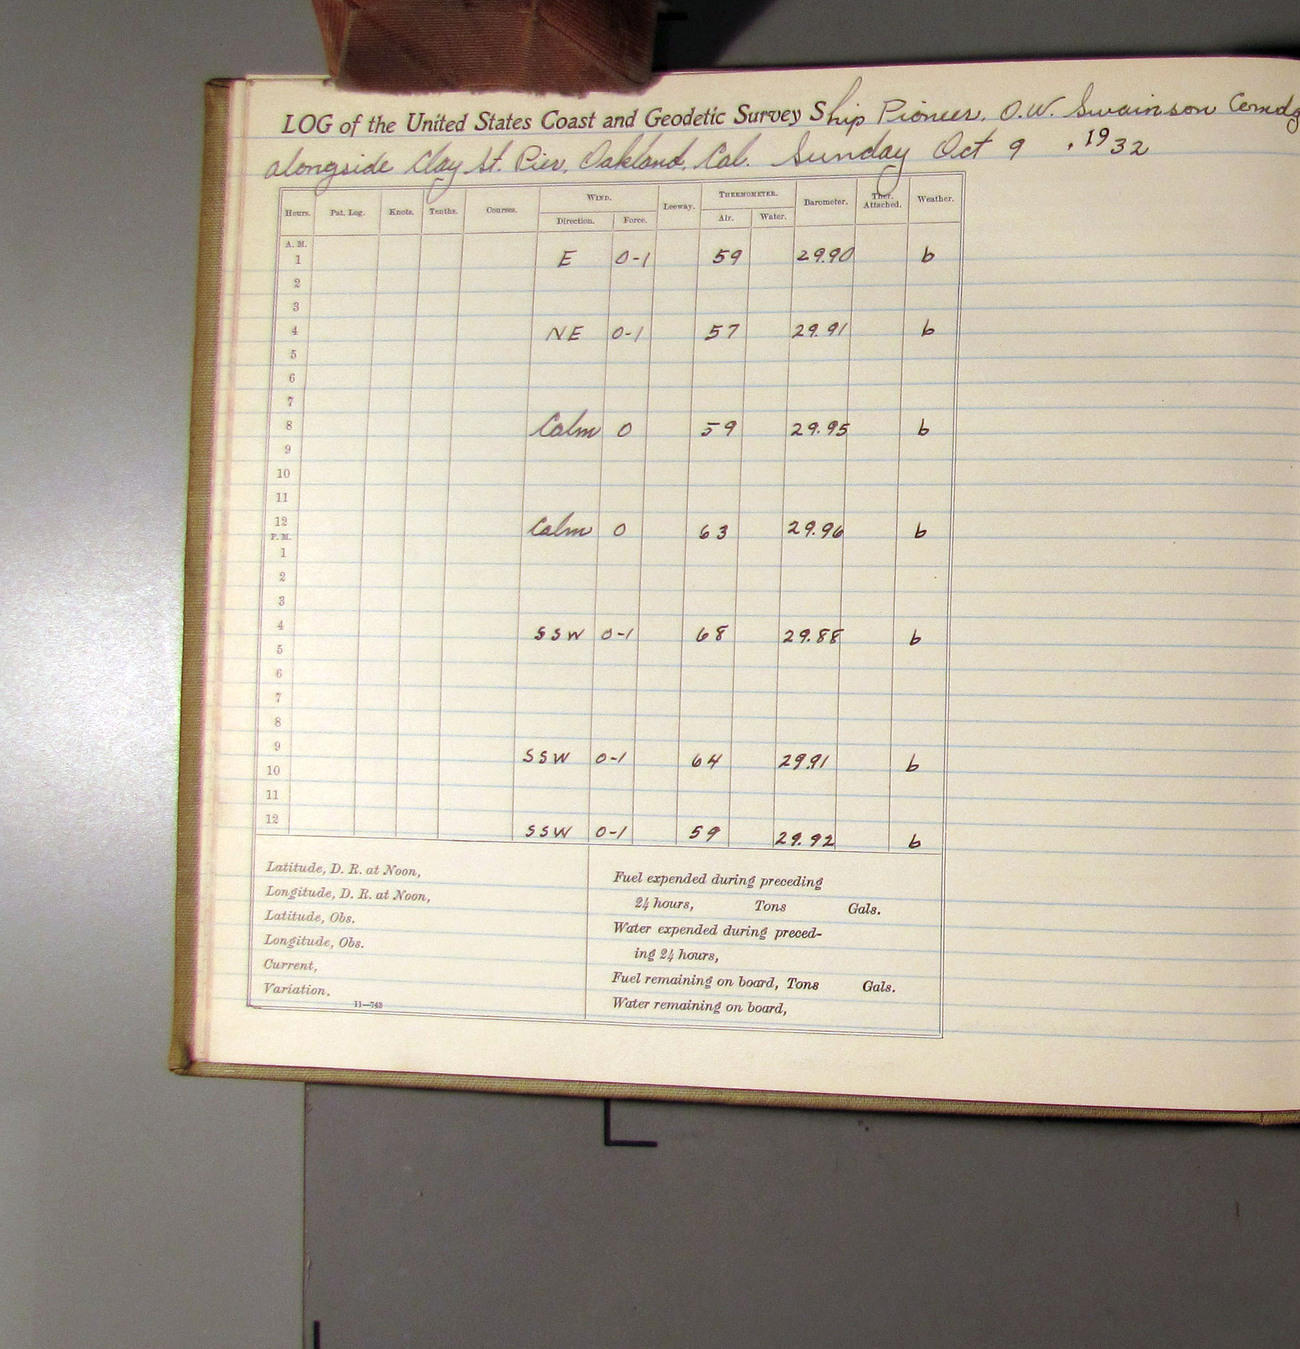 LOG of the United States Coast and Geodetic Survey Ship Pioneer, O.W. Swainson Comdg
alongside Clay St. Pier, Oakland, Cal. Sunday Oct 9, 1932
Hours. Pat. Log. Knots. Tenths. Courses. WIND. Leeway. THERMOMETER. Barometer. Ther. Attached. Weather.
Direction. Force. Air. Water.
A. M.
1 E 0-1 59 29.90 b
2
3
4 NE 0-1 57 29.91 b
5
6
7
8 Calm 0 59 29.95 b
9
10
11
12 Calm 0 63 29.96 b
P. M.
1
2
3
4 SSW 0-1 68 29.88 b
5
6
7
8
9
10 SSW 0-1 64 29.91 b
11
12 SSW 0-1 59 29.92 b
Latitude, D. R. at Noon,
Longitude, D. R. at Noon,
Latitude, Obs.
Longitude, Obs.
Current,
Variation,
11—743
Fuel expended during preceding
24 hours, Tons Gals.
Water expended during preced-
ing 24 hours,
Fuel remaining on board, Tons Gals.
Water remaining on board,